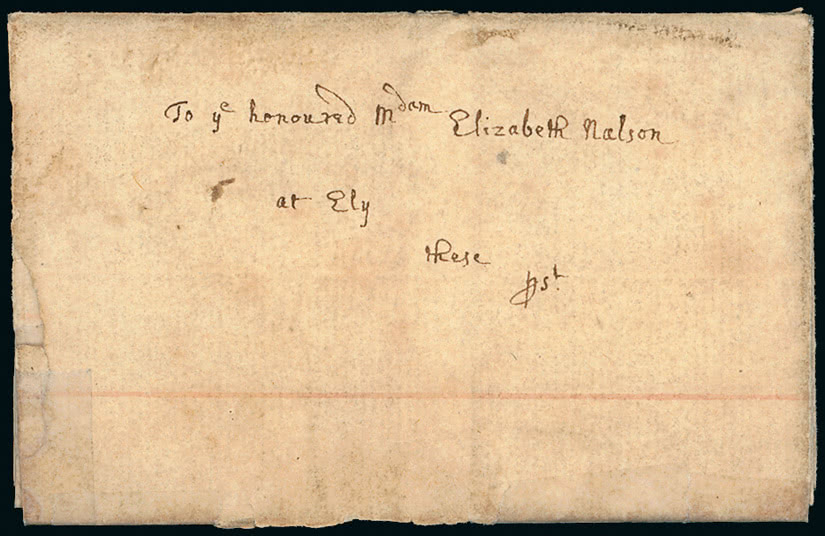 To ye honoured Mdam Elizabeth Nalson
at Ely
these
pst